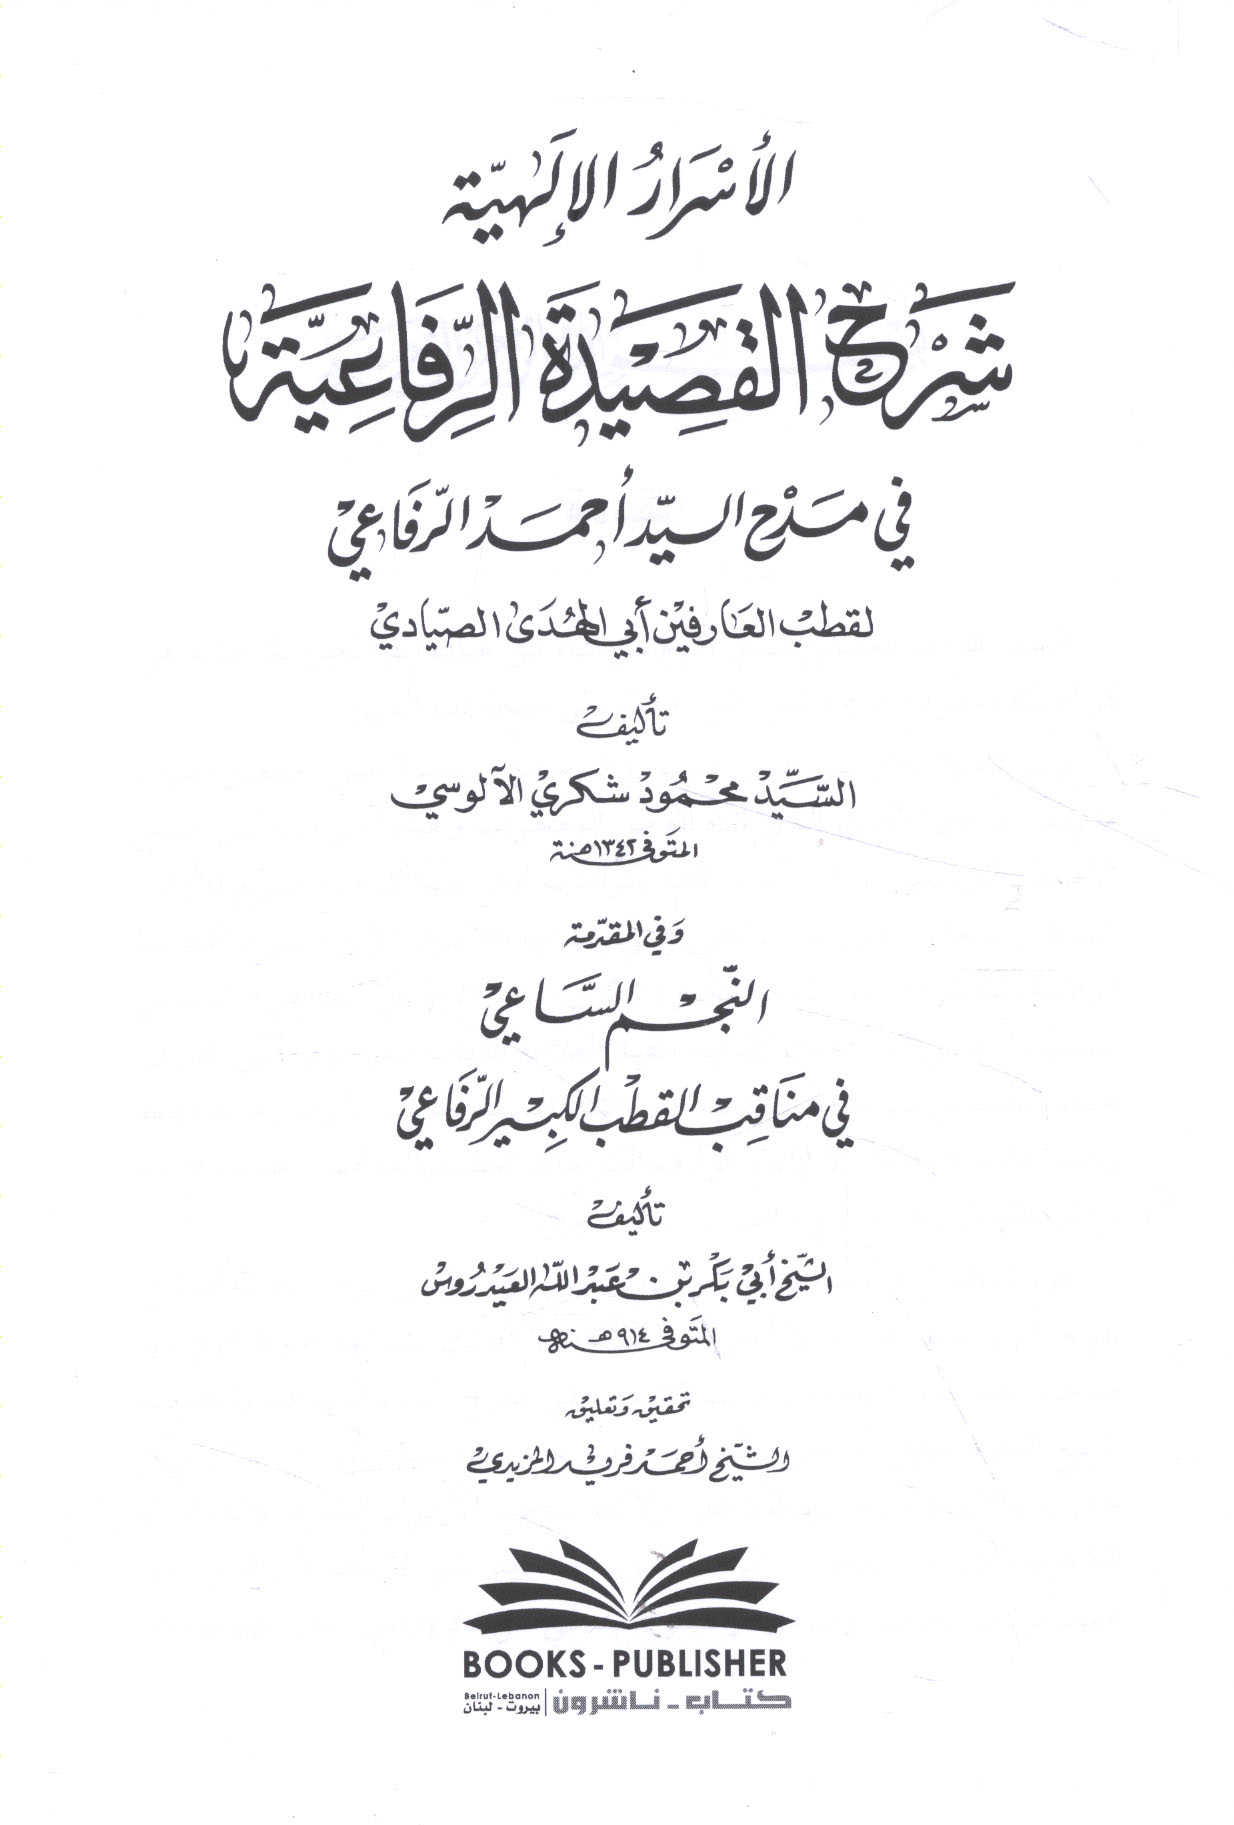 الأَسْرَارُ الإِلَهِيَّة
شَرْحُ القَصِيْدَةِ الرِّفَاعِيَّة
في مَدْح السيّد أحمَد الرّفَاعيْ
لقطب العَارفيْن أبي الهُدَىْ الصيّاديْ
تأليف
السَّيِّد محمُود شكريْ الآلوسيْ
المتَوفى ١٣٤٢ هنة
وَفي المقدّمة
النّجم السَّاعيْ
في مناقِب القطْب الكبِير الرّفَاعيْ
تأليف
الشّيخ أبيْ بَكْر بن عَبْد اللّه العَيْدرُوسْ
المتَوفى ٩١٤ هـ
تحقيق وَتعليق
الشّيخ أحمَد فريد المزيديْ
BOOKS - PUBLISHER
كتاب - ناشرون
Beirut-Lebanon
بيروت - لبنان